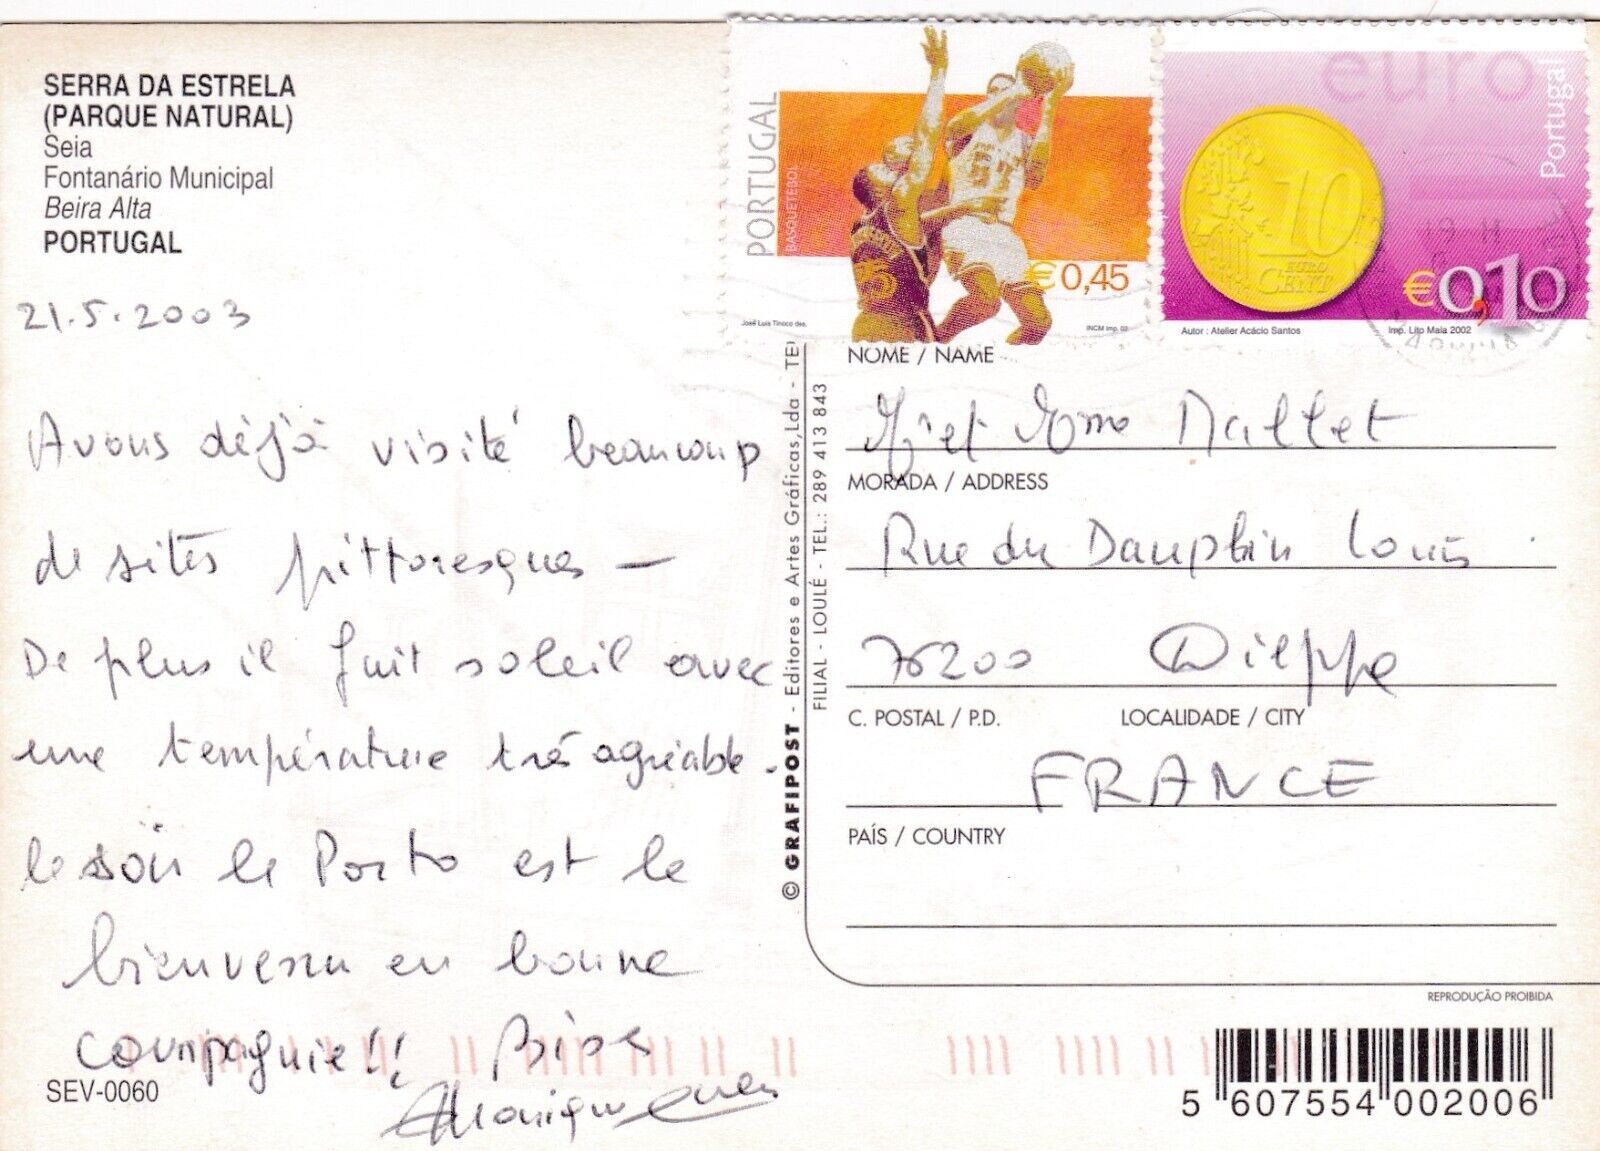 SERRA DA ESTRELA
(PARQUE NATURAL)
Seia
Fontanário Municipal
Beira Alta
PORTUGAL
21.5.2003
Avons déjà visité beaucoup
de sites pittoresques —
De plus il fait soleil avec
une température très agréable.
le soir le Porto est le
bienvenu en bonne
compagnie!! Bises
Monique
SEV-0060
© GRAFIPOST - Editores e Artes Gráficas, Lda - TE
FILIAL - LOULÉ - TEL.: 289 413 843
PORTUGAL
BASQUETEBOL
€0,45
José Luis Tinoco des.
INCM Imp. 02
euro
Portugal
10
EURO
CENT
€0,10
Autor : Atelier Acácio Santos
Imp. Lito Maia 2002
NOME / NAME
Mr et Mme Mallet
MORADA / ADDRESS
Rue du Dauphin Louis
76200 Dieppe
C. POSTAL / P.D. LOCALIDADE / CITY
FRANCE
PAÍS / COUNTRY
REPRODUÇÃO PROIBIDA
5 607554 002006